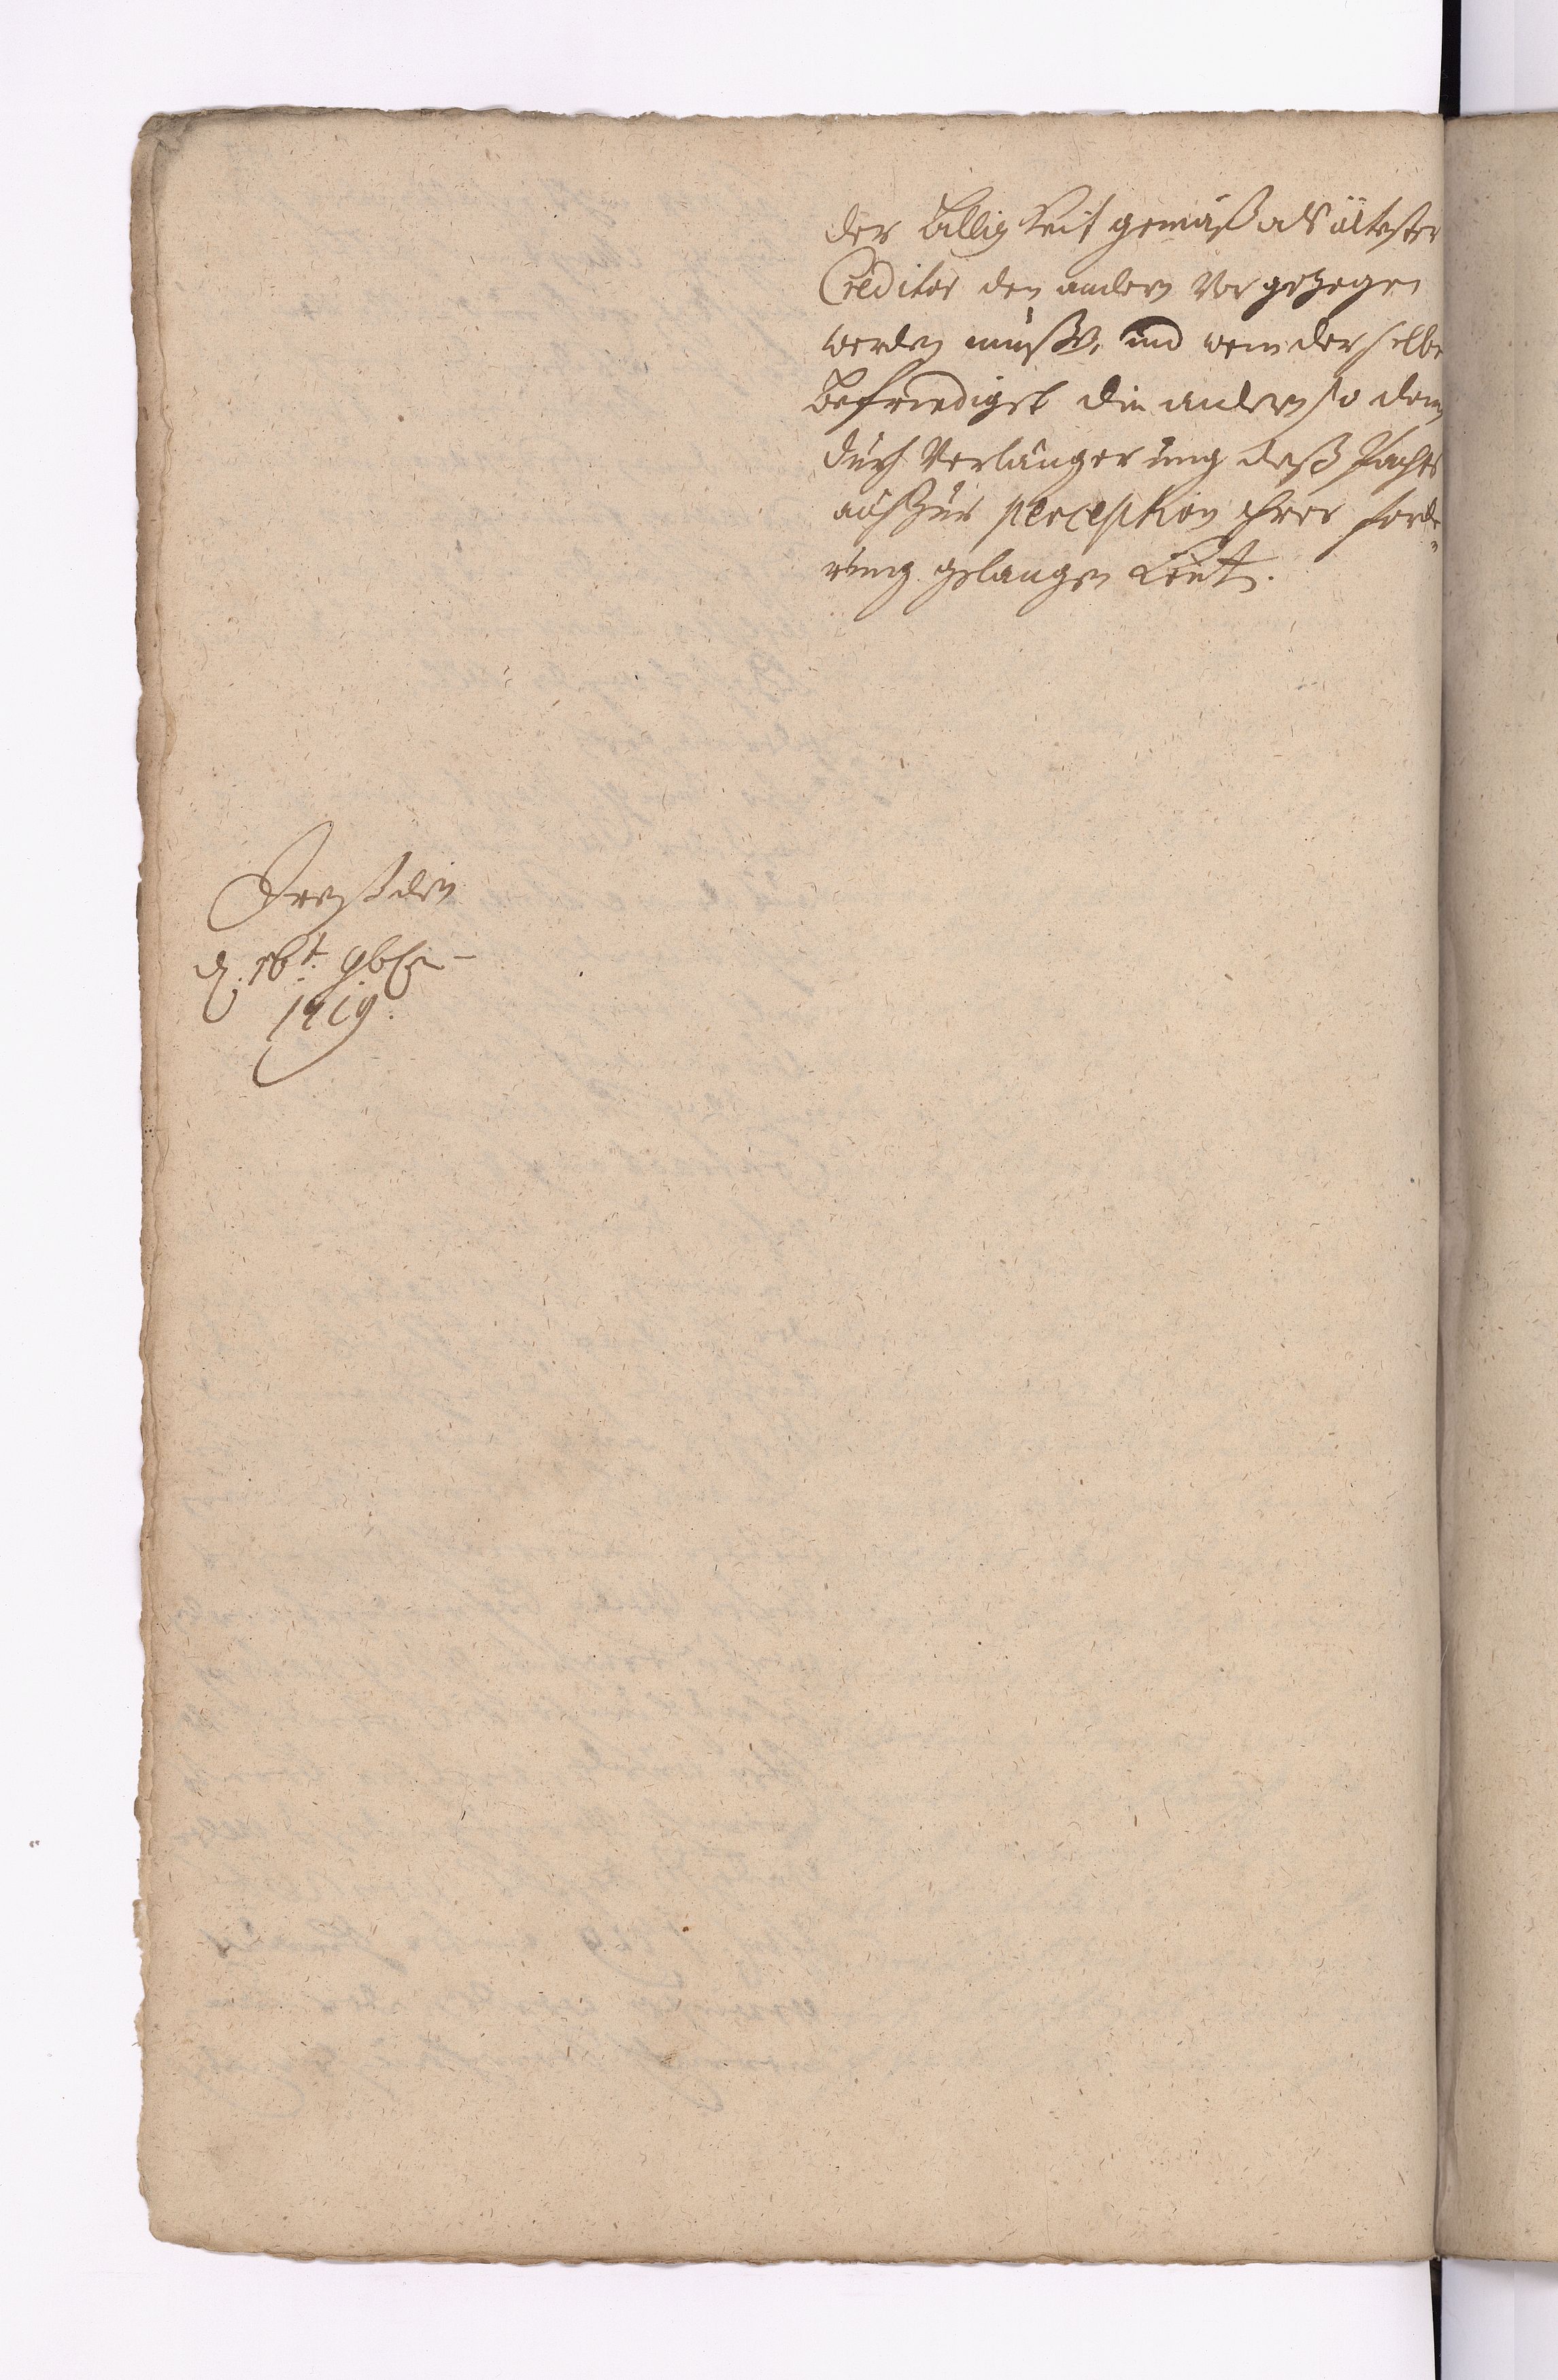 der billigkeit gemäß als ältester
Creditor den andern Vorgezogen
werden muste, und wenn derselbe
befriediget die andern so dann
durch Verlängerung deß Pachts
auch zur perception ihrer forde-
rung gelangen könt.
Dreßden
d. 16t. 9br
1719.